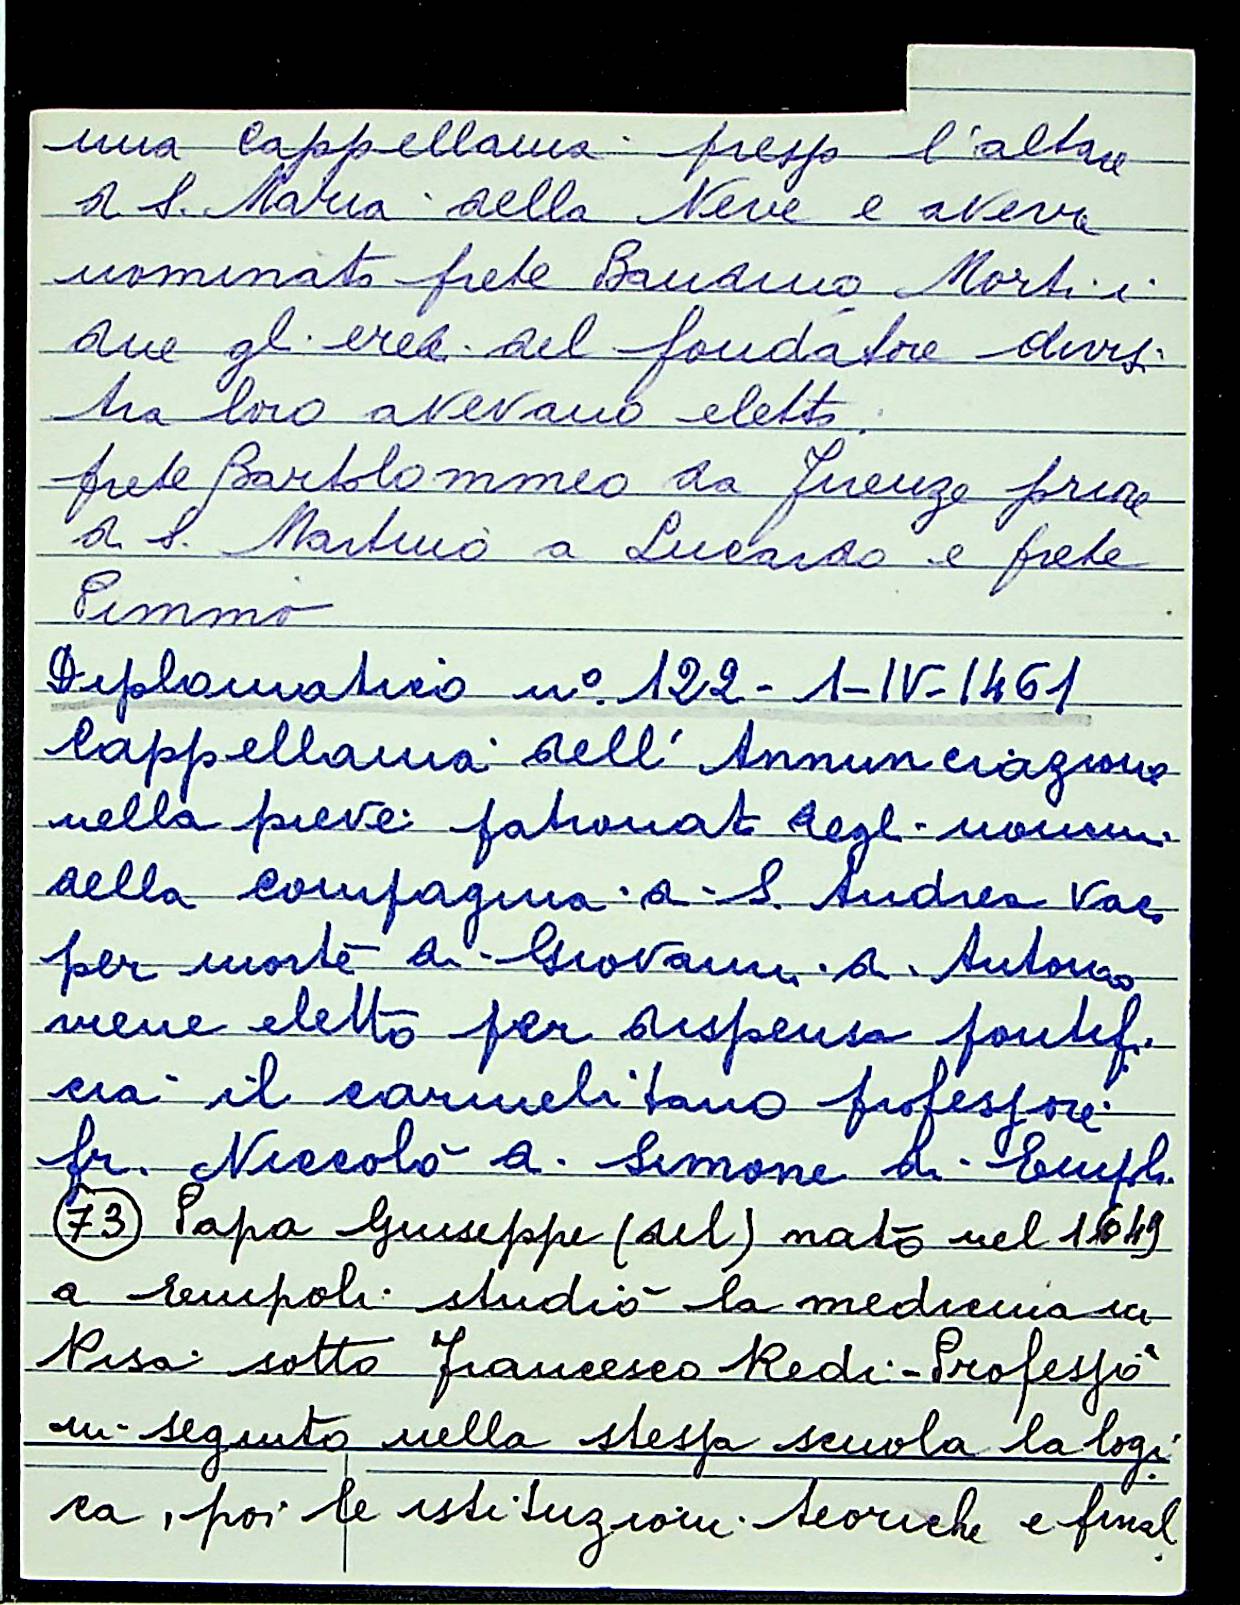 una cappellania presso l'altare
di S. Maria della Neve e aveva
nominato frete Bandino Morti i
due gli eredi del fondatore divisi
tra loro avevano eletto
frete Bartolommeo da Firenze priore
di S. Martino a Lucardo e frete
Pimmo
Diplomatico n°. 122 - 1-IV-1461
Cappellania dell'Annunciazione
nella pieve patronato degli uomini
della compagnia di S. Andrea vac.
per morte di Giovanni di Antonio
viene eletto per dispensa pontif.
cia il carmelitano professore
fr. Niccolò di Simone di Empoli
73 Papa Giuseppe (del) nato nel 1649
a Empoli studiò la medicina in
Pisa sotto Francesco Redi - Professò
in seguito nella stessa scuola la logi
ca, poi le istituzioni teoriche e final